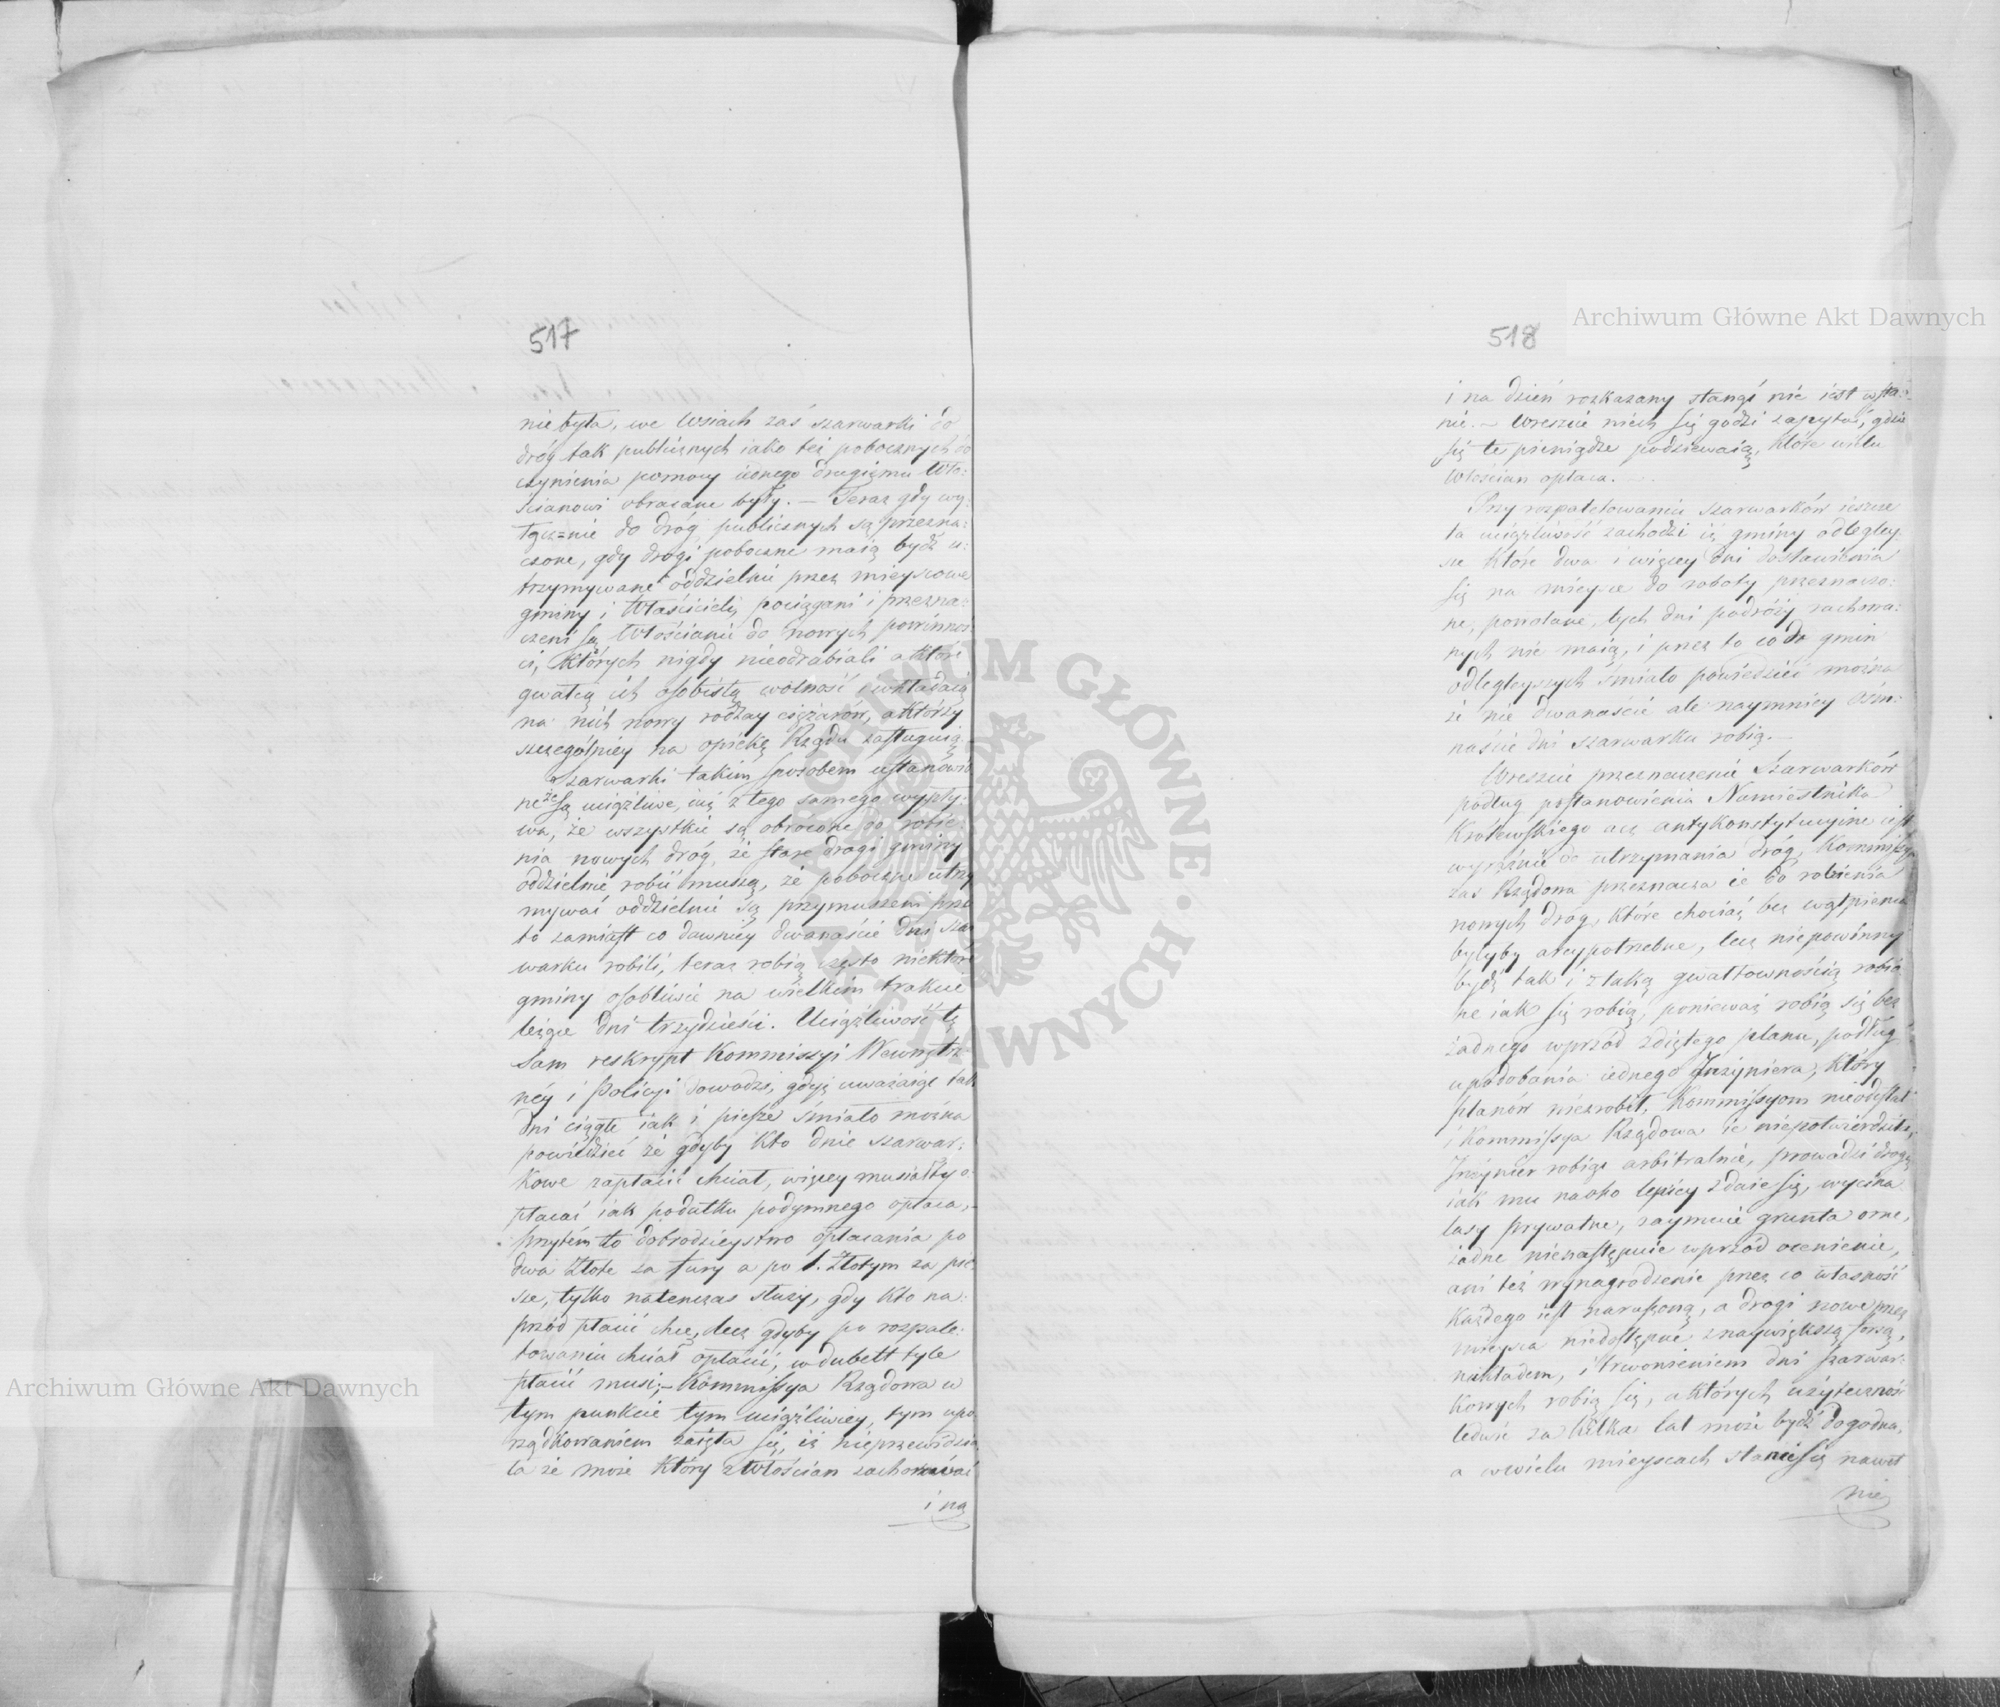 517
niebyła, we Wsiach zaś szarwarki do
dróg tak publicznych iako też pobocznych do
czynienia pomocy iednego drugiemu Wło-
ścianowi obracane były. — Teraz gdy wy-
łącznie do dróg publicznych są przezna-
czone, gdy drogi poboczne maią bydź u-
trzymywane oddzielnie przez mieyscowe
gminy i Właścicieli, pociągani i przezna-
czeni są Włościanie do nowych powinnoś-
ci, których nigdy nieodrabiali a które
gwałcą ich osobistą wolność i wkładaią
na nich nowy rodzay ciężarów, a którzy
szczególniey na opiekę Rządu zasługuią.
Szarwarki takim sposobem ustanowio
ne że są uciążliwe, iuż z tego samego wypły-
wa, że wszystkie są obrócone do robie-
nia nowych dróg, że stare drogi gminy
oddzielnie robić muszą, że poboczne utrzy
mywać oddzielnie są przymuszeni prze
to zamiast co dawniey dwanaście dni szar
warku robili, teraz robią często niektóre
gminy osobliwie na wielkim trakcie
leżące dni trzydzieści. Uciążliwość tę
sam reskrypt Kommissyi Wewnętrz
ney i Policyi dowodzi, gdyż uważaiąc tak
dni ciągłe iak i piesze śmiało można
powiedzieć że gdyby kto dnie szarwar-
kowe zapłacić chciał, więcey musiałby o-
płacać iak podatku podymnego opłaca,
przytem to dobrodzieystwo opłacania po
dwa Złote za fury a po 1. Złotym za pie
sze, tylko natenczas służy, gdy kto na-
przód płacić chce, lecz gdyby po rozpale-
towaniu chciał opłacić, w dubelt tyle
płacić musi; — Kommissya Rządowa w
tym punkcie tym uciążliwiey, tym upo
rządkowaniem zaięła się, iż nieprzewidzia
ła że może który z Włościan zachorować
i na
518
i na dzień rozkazany stanąć nie iest w sta-
nie. — Wreszcie niech się godzi zapytać, gdzie
się te pieniądze podziewaią, które wielu
Włościan opłaca.
Przy rozpaletowaniu szarwarków ieszcze
ta uciążliwość zachodzi iż gminy odległey-
sze które dwa i więcey dni do stawienia
się na mieysce do roboty przeznaczo-
ne, powołane, tych dni podróży rachowa-
nych nie maią, i przez to co do gmin
odległeyszych śmiało powiedzieć można
że nie dwanaście ale naymniey ośm-
naście dni szarwarku robią. —
Wreszcie przeznaczenie Szarwarków
podług postanowienia Namiestnika
Królewskiego acz antykonstytucyine iest
wyraźnie do utrzymania dróg, Kommissya
zaś Rządowa przeznacza ie do robienia
nowych dróg, które chociaż bez wątpienia
byłyby arcypotrzebne, lecz niepowinny
bydź tak i z taką gwałtownością robio
ne iak się robią, ponieważ robią się bez
żadnego wprzód zdiętego planu, podług
upodobania iednego Inżyniera, który
planów niezrobił, Kommissyom nieodesłał
i Kommissya Rządowa ie niepotwierdziła,
Inżynier robiąc arbitralnie, prowadzi drogę
iak mu na oko lepiey zdaie się, wycina
lasy prywatne, zaymuie grunta orne,
żadne niezastępuie wprzód ocenienie,
ani też wynagrodzenie przez co własność
każdego iest naruszoną, a drogi nowe przez
mieysca niedostępne z naywiększą forsą,
nakładem, i trwonieniem dni szarwar-
kowych robią się, a których użyteczność
ledwie za kilka lat może bydź dogodna,
a w wielu mieyscach stanie się nawet
nie
Archiwum Główne Akt Dawnych
Archiwum Główne Akt Dawnych
ARCHIWUM GŁÓWNE • AKT DAWNYCH •